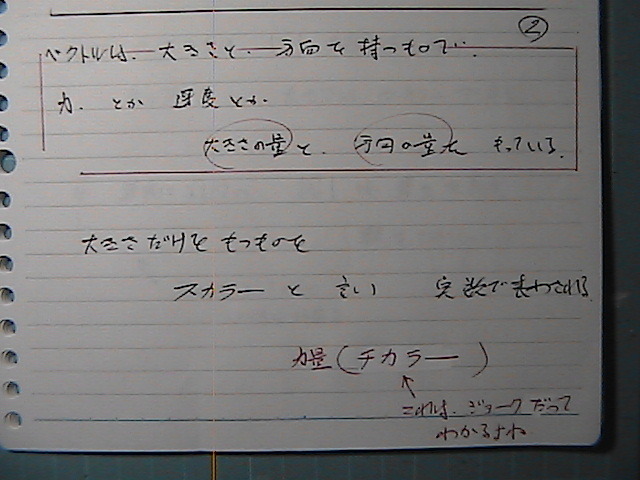 ②
ベクトルは、大きさと、方向を持つもので、
力、とか 速度とか、
大きさの量と、方向の量を もっている。
大きさだけをもつものを
スカラーと言い 実数で表わされる。
力量(チカラー)
これは、ジョークだって
わかるよね